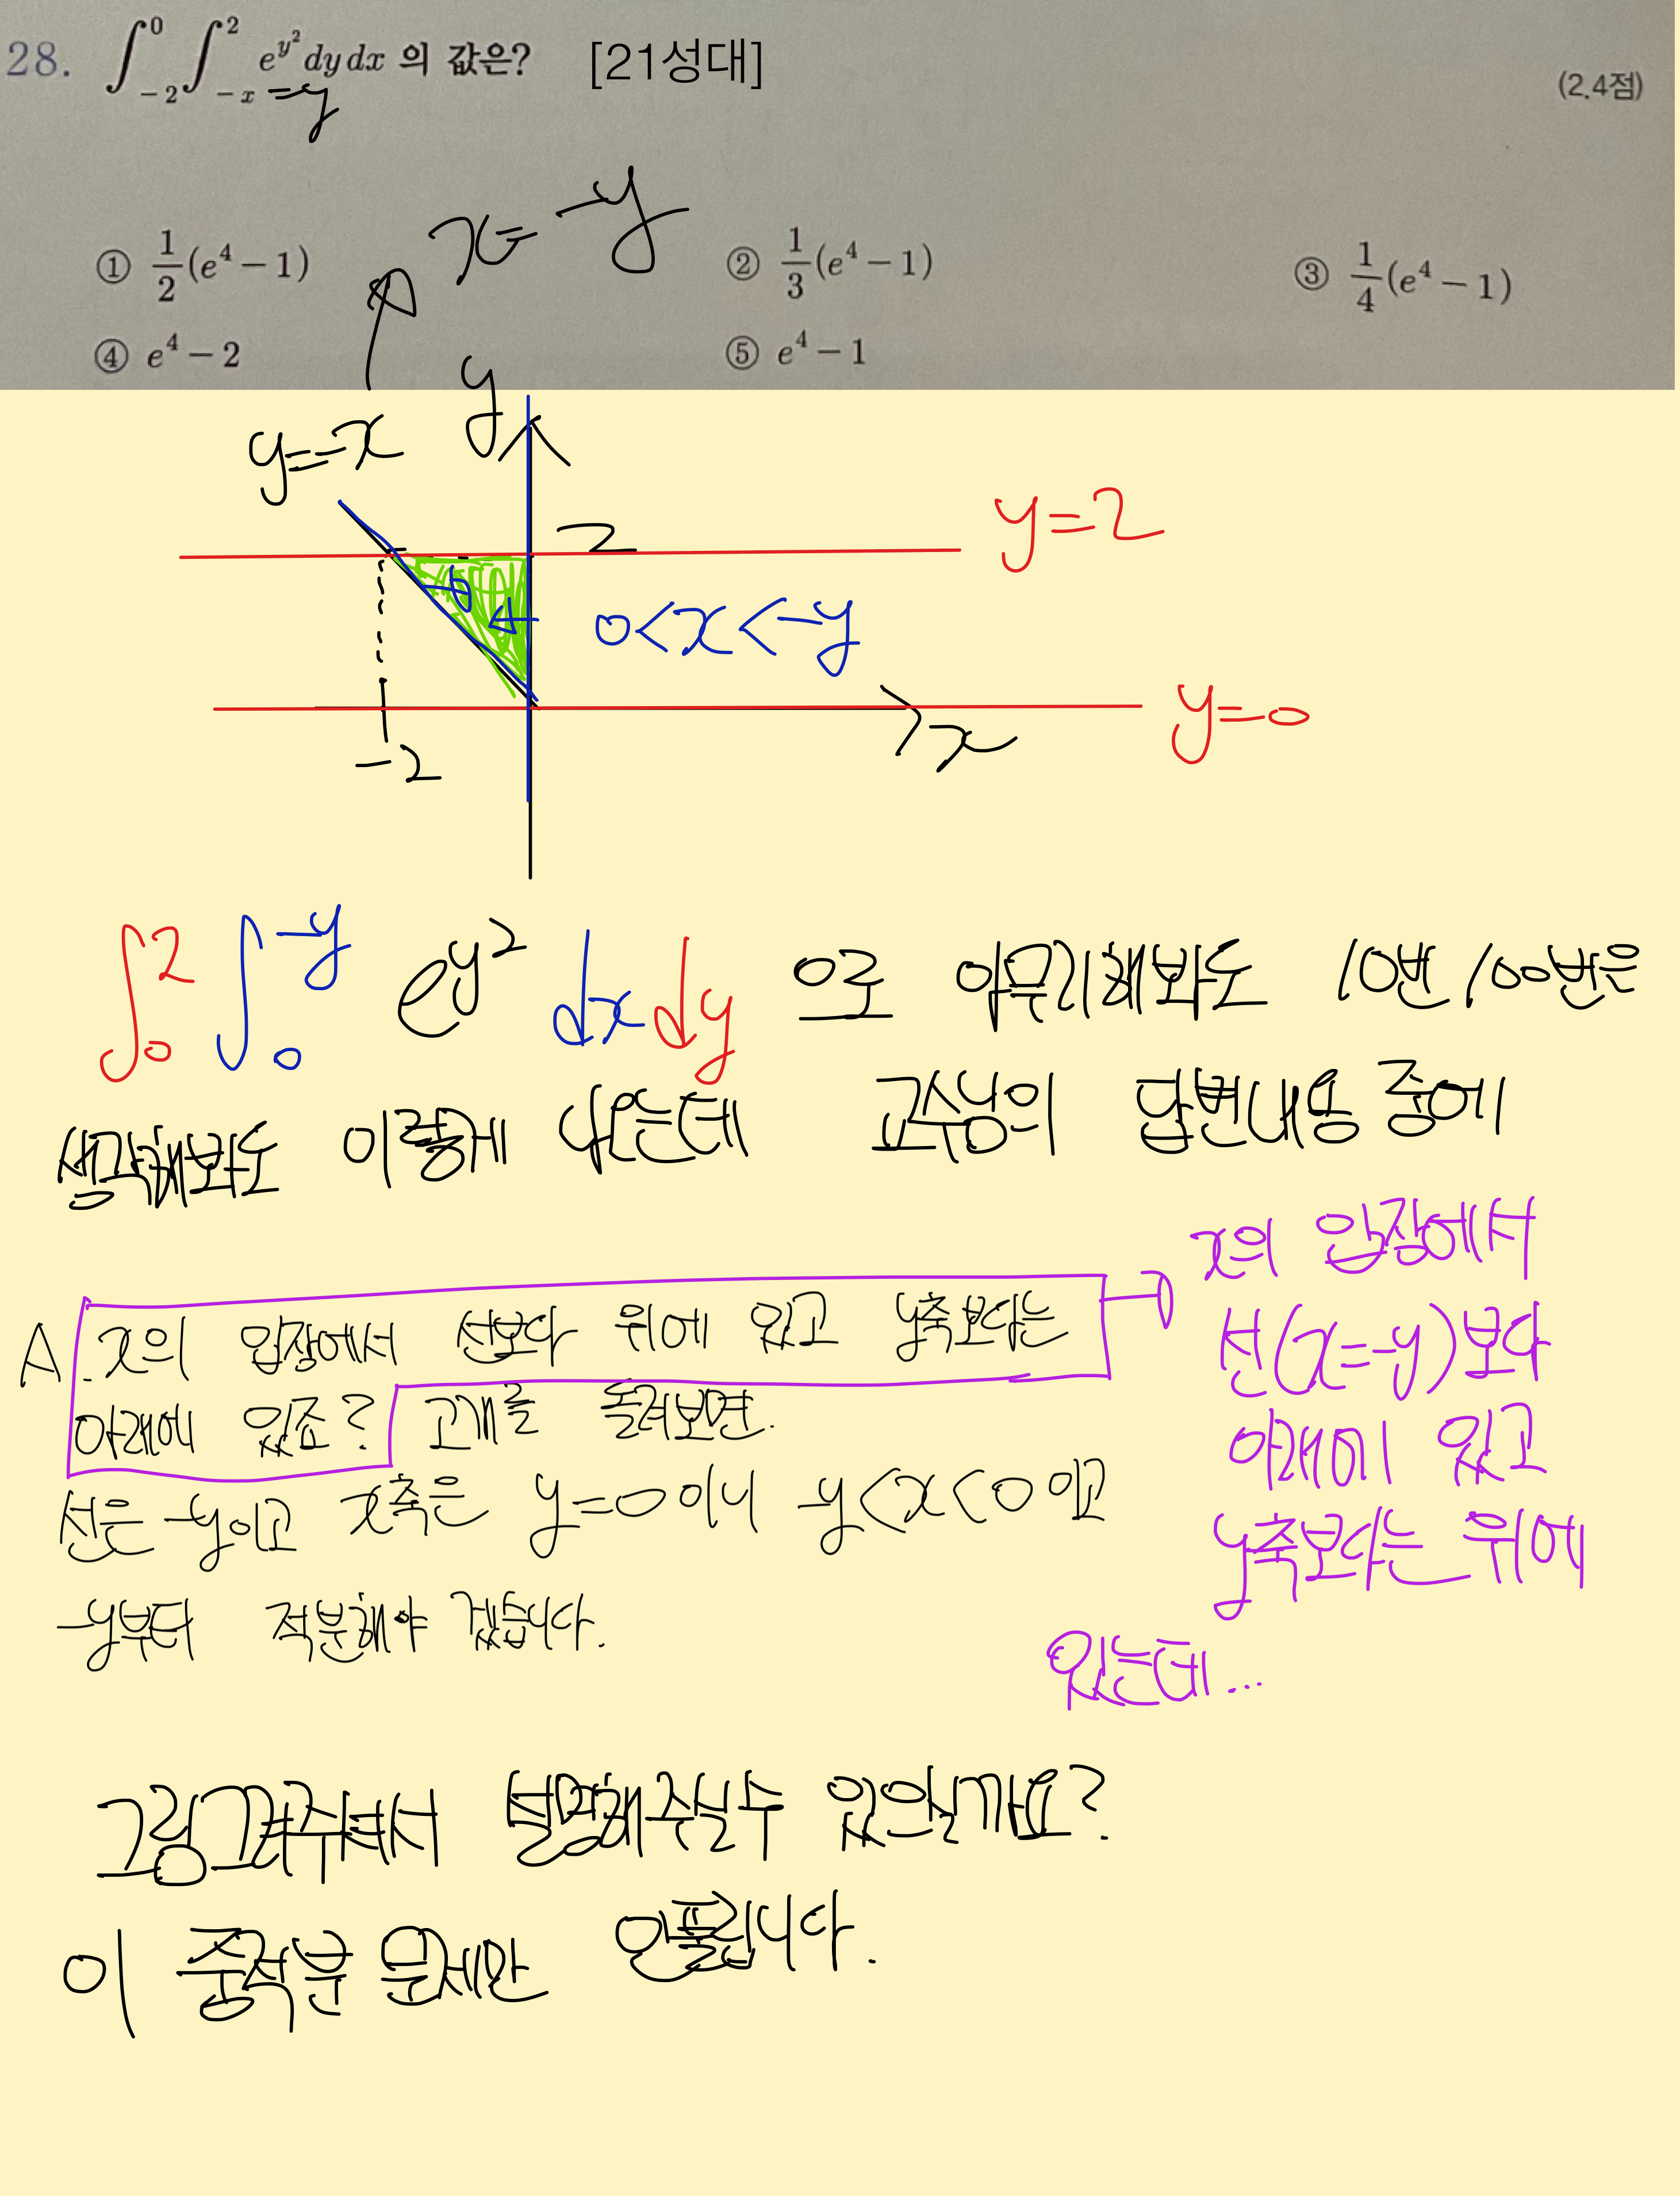 28. ∫_{-2}^{0} ∫_{-x}^{2} e^{y^2} dy dx 의 값은? [21성대]
(2.4점)
=y
x=-y
① 1/2(e^4-1) ② 1/3(e^4-1) ③ 1/4(e^4-1)
④ e^4-2 ⑤ e^4-1
y=-x
y
y=2
2
0<x<-y
y=0
-2
x
∫_0^2 ∫_0^{-y} e^{y^2} dx dy 으로 아무리해봐도 10번 100번은
생각해봐도 이렇게 나오는데 교수님의 답변내용 중에
A. x의 입장에서 선보다 위에 있고 y축보다는
아래에 있죠? 고개를 돌려보면.
선은 -y이고 x축은 y=0이니 -y<x<0이고
-y부터 적분해야 겠습니다.
x의 입장에서
선(x=-y)보다
아래에 있고
y축보다는 위에
있는데...
그림그려주셔서 설명해주실수 있을까요?
이 중적분 문제만 안풀립니다.